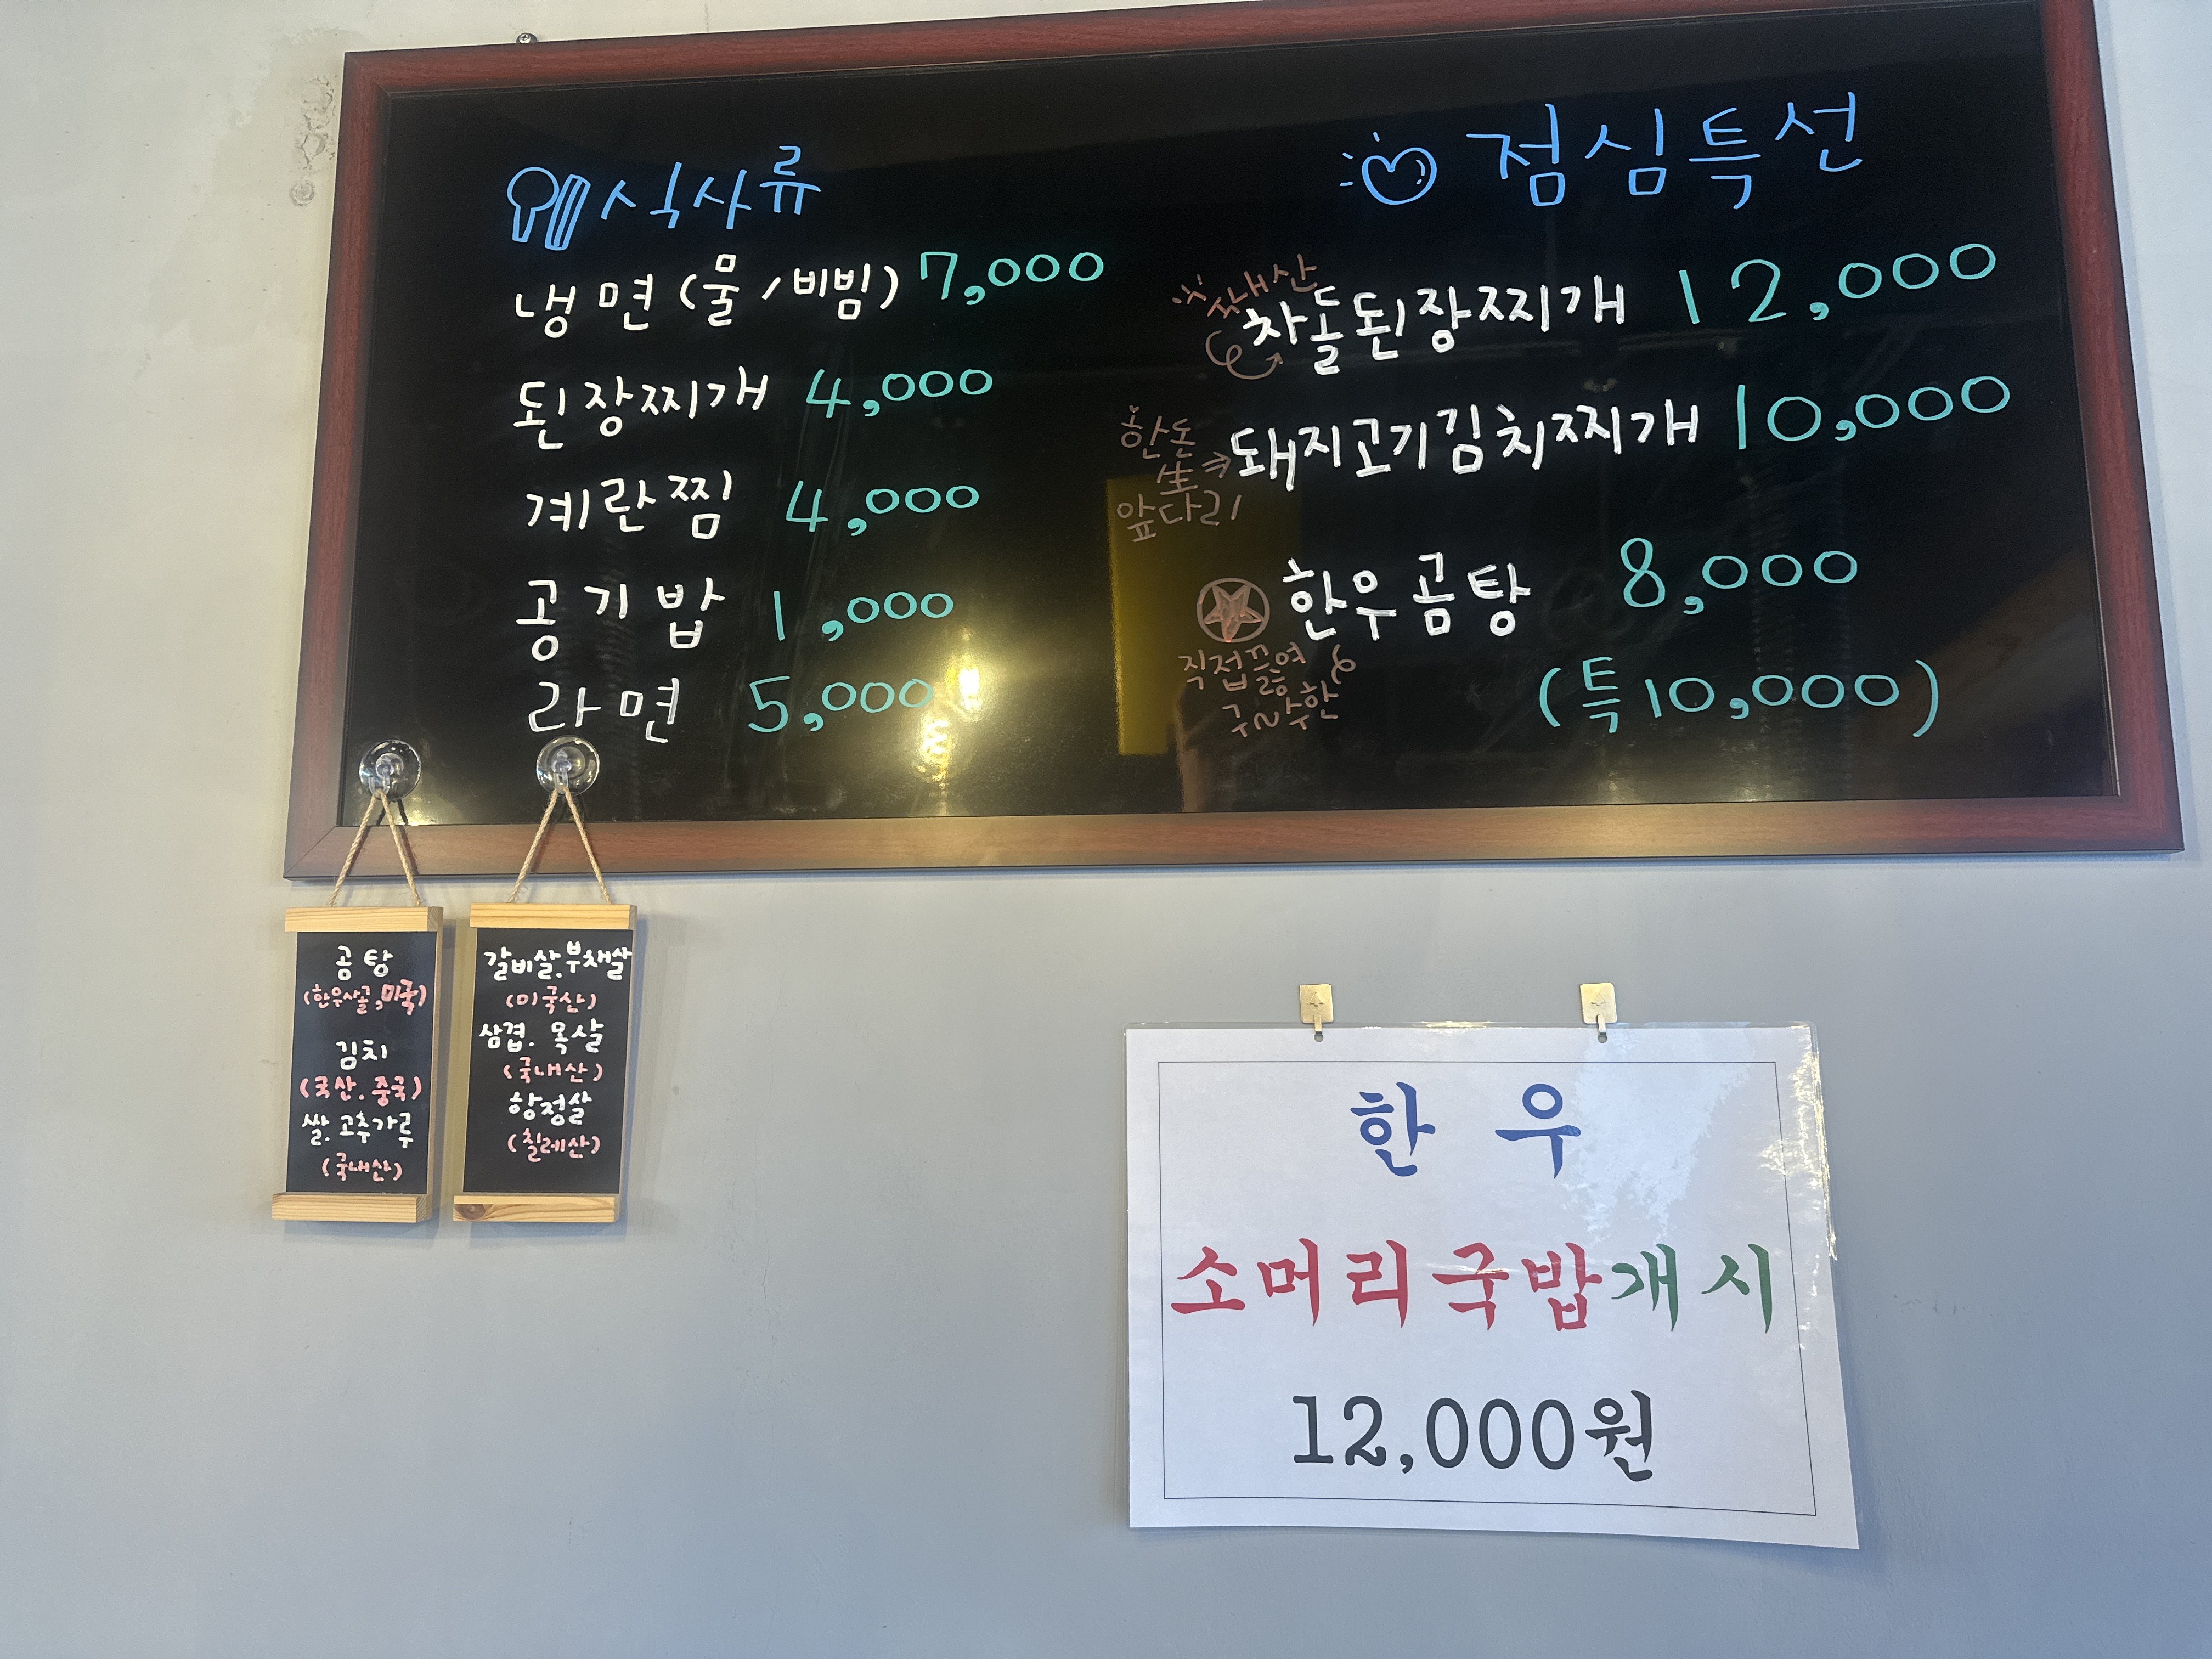 식사류
냉면(물/비빔) 7,000
된장찌개 4,000
계란찜 4,000
공기밥 1,000
라면 5,000
점심특선
국내산
차돌된장찌개 12,000
한돈
生
앞다리
돼지고기김치찌개 10,000
한우곰탕 8,000
직접끓여
구수한
(특 10,000)
곰탕
(한우사골,미국)
김치
(국산.중국)
쌀.고추가루
(국내산)
갈비살.부채살
(미국산)
삼겹.목살
(국내산)
항정살
(칠레산)
한우
소머리국밥개시
12,000원